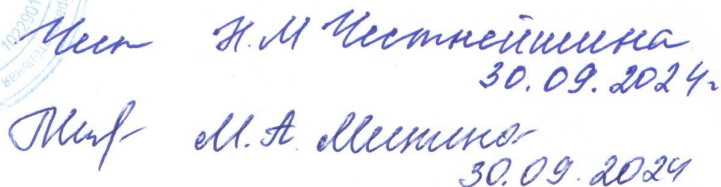 Н.М Честнейшина
30.09.2024г
М.А. Митина
30.09.2024